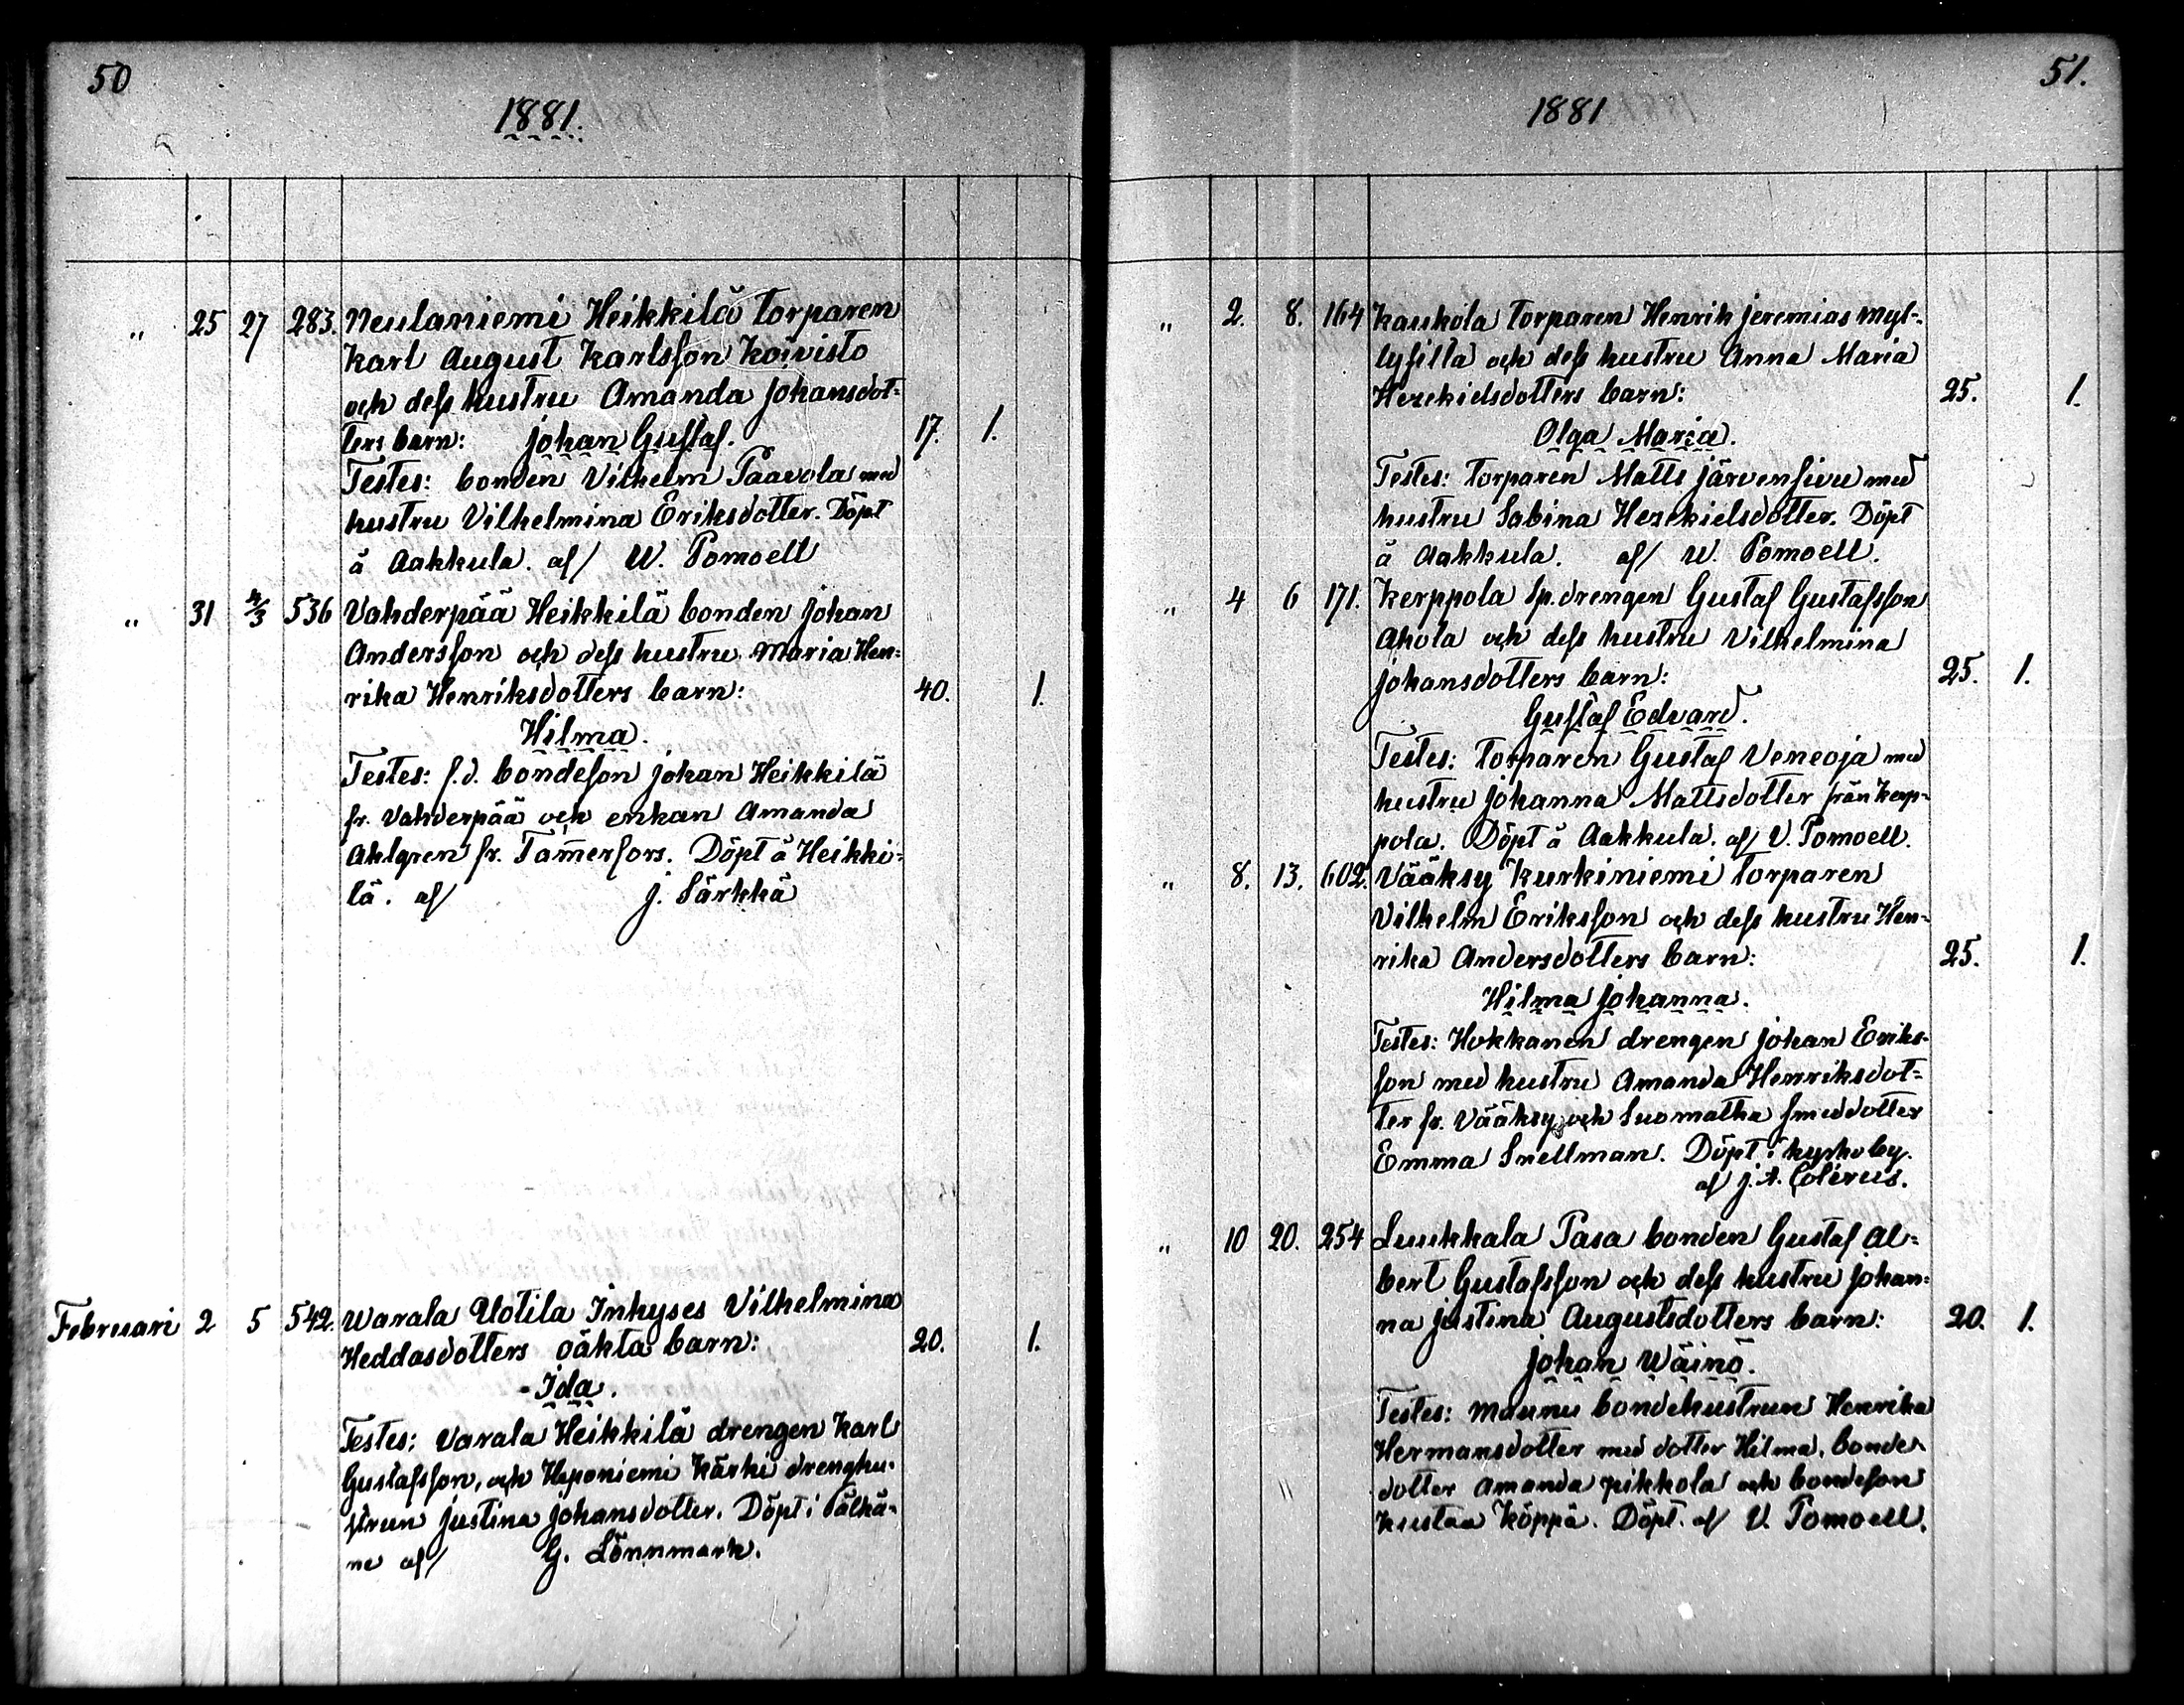 50
1881.
" 25 27 283. Neulaniemi Heikkilä torparen
Karl August Karlsson Koivisto
och dess hustru Amanda Johansdot-
ters barn: Johan Gustaf. 17. 1.
Testes: bonden Vilhelm Paavola med
hustru Vilhelmina Eriksdotter. Döpt
å Aakkula. af/ W. Pomoell
" 31 4/3 536 Vahderpää Heikkilä bonden Johan
Andersson och dess hustru Maria Hen-
rika Henriksdotters barn: 40. 1.
Hilma.
Testes: f.d. bondeson Johan Heikkilä
fr. Vahderpää och enkan Amanda
Ahlgren fr. Tam̅erfors. Döpt å Heikki-
lä. af/ J. Särkkä
Februari 2 5 542. Warala Uotila Inhyses Vilhelmina
Heddasdotters oäkta barn: 20. 1.
Ida.
Testes: Varala Heikkilä drengen Karl
Gustafsson, och Heponiemi Kärki drenghu-
strun Justina Johansdotter. Döpt i Pälkä-
ne af/ G. Lönnmark.
51.
1881
" 2. 8. 164 Kaukola torparen Henrik Jeremias Myl-
lysilla och dess hustru Anna Maria
Hezekielsdotters barn: 25. 1.
Olga Maria.
Testes: torparen Matts Järvensivu med
hustru Sabina Hezekielsdotter. Döpt
å Aakkula. af/ W. Pomoell.
" 4 6 171. Kerppola sp.drengen Gustaf Gustafsson
Ahola och dess hustru Vilhelmina
Johansdotters barn: 25. 1.
Gustaf Edvard.
Testes: torparen Gustaf Veneoja med
hustru Johanna Mattsdotter från Kerp-
pola. Döpt å Aakkula. af/ V. Pomoell.
" 8. 13. 602. Vääksy Kurkiniemi torparen
Vilhelm Eriksson och dess hustru Hen-
rika Andersdotters barn: 25. 1.
Hilma Johanna.
Testes: Hokkanen drengen Johan Eriks-
son med hustru Amanda Henriksdot-
ter fr. Vääksy och Suomatka smeddotter
Emma Snellman. Döpt i kyrkoby.
af J. A. Colérus.
" 10 20. 254 Luukkala Pasa bonden Gustaf Al-
bert Gustafsson och dess hustru Johan-
na Justina Augustsdotters barn: 20. 1.
Johan Wäinö.
Testes: Maunu bondehustrun Henrika
Hermansdotter med dotter Hilma, bonde-
dotter Amanda Pikkola och bondeson
Kustaa Köppä. Döpt. af/ V. Pomoell.